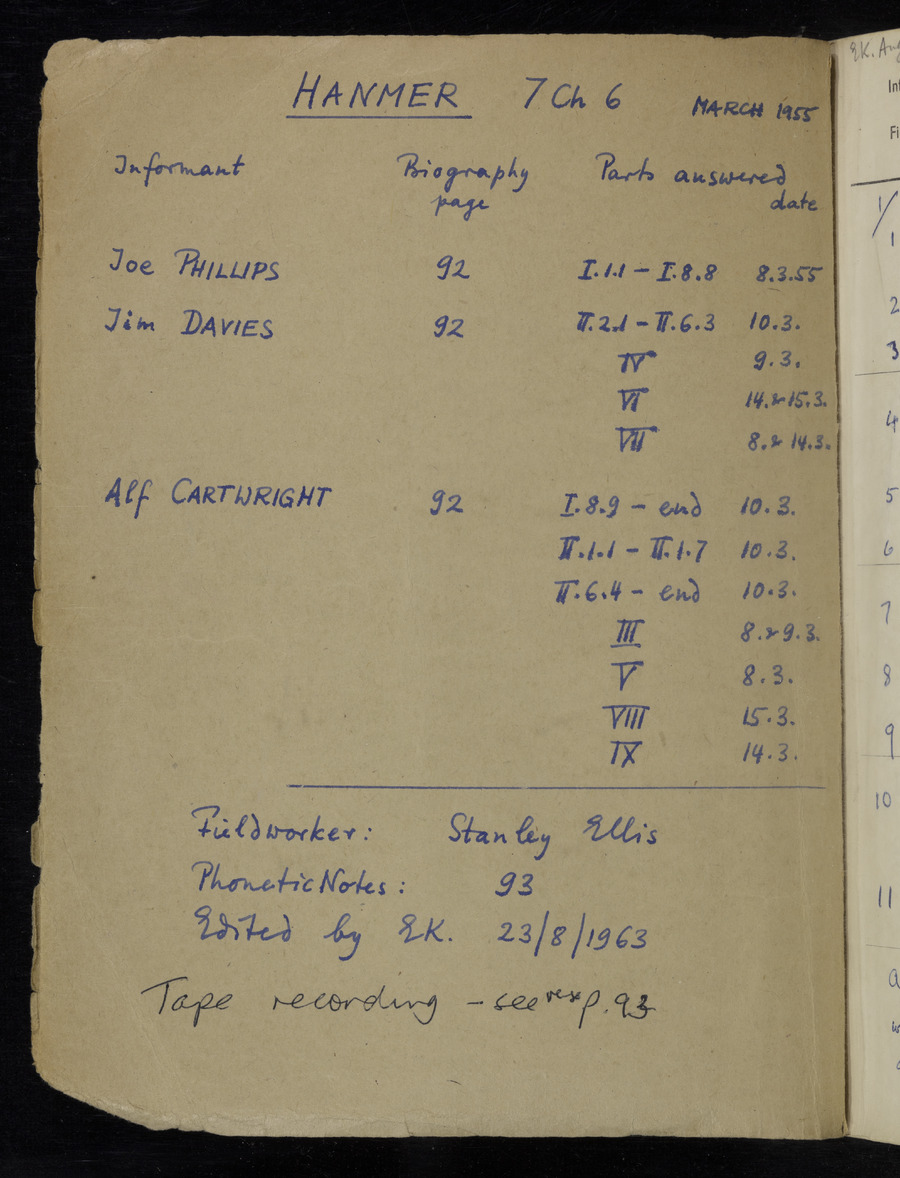 HANMER 7 Ch 6 MARCH 1955
Informant Biography page Parts answered date
Joe PHILLIPS 92 I.1.1 – I.8.8 8.3.55
Jim DAVIES 92 II.2.1 – II.6.3 10.3.
IV 9.3.
VI 14.&15.3.
VII 8.&14.3.
Alf CARTWRIGHT 92 I.8.9 – end 10.3.
II.1.1 – II.1.7 10.3.
II.6.4 – end 10.3.
III 8.&9.3.
V 8.3.
VIII 15.3.
IX 14.3.
Fieldworker: Stanley Ellis
Phonetic Notes: 93
Edited by EK. 23/8/1963
Tape recording – see p. 93
EK.
1
1
2
3
4
5
6
7
8
9
10
11